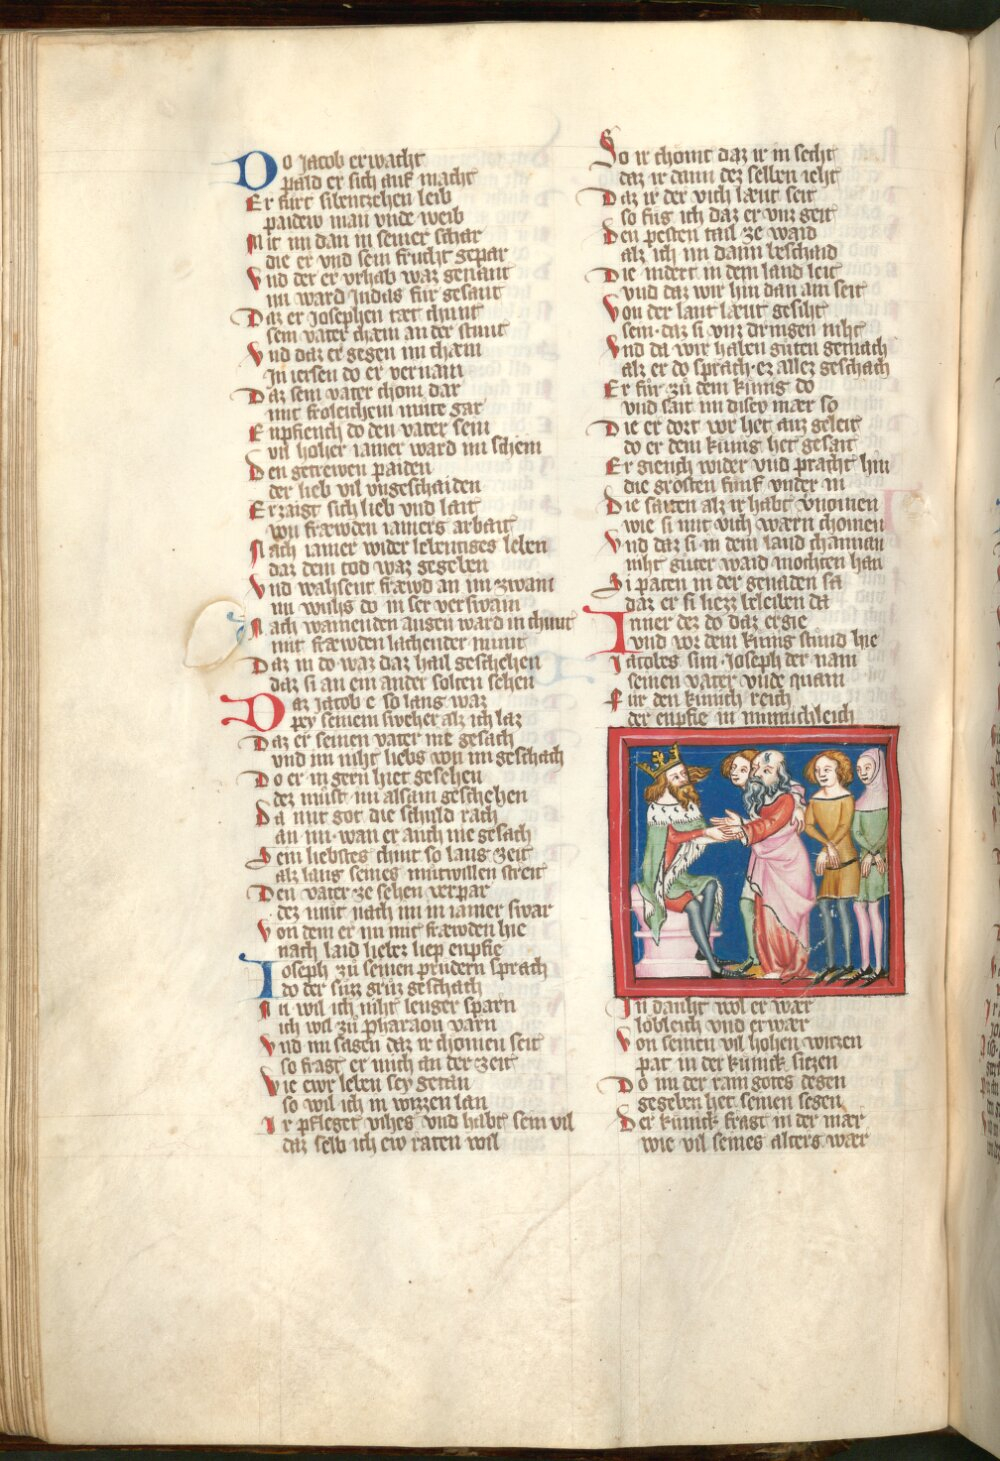 Do jacob erwacht
pald er sich auf macht
Er fürt sibentzehen leib
paidew man vnde weib
Mit im dan in seiner schar
die er vnd sein frucht gepar
Vnd der er vrhab waz genant
nu ward Judas für gesant
Daz er josephen tæt chunt
sein vater chæm an der stunt
Vnd daz er gegen im chæm
in iersen do er vernam
Daz sein vater chom dar
mit froleichem mute gar
Enpfiench do den vater sein
vil hoher iamer ward im schein
Den getrewen paiden
der lieb vil vngeschaiden
Erzaigt sich lieb vnd lait
von fræwden iamers arbait
Nach iamer wider lebentiges leben
daz dem tod waz gegeben
Vnd wahsent fræwd an im zwam
im wuhs do in ser verswam
Nach wainenden augen ward in chunt
mit fræwden lachender munt
Daz in do waz daz hail geschehen
daz si an ein ander solten sehen
Daz jacob e so lang waz
pey seinem sweher alz ich laz
Daz er seinen vater nie gesach
vnd im niht liebs von im geschach
Do er in gern hiet gesehen
dez müst im alsam geschehen
Da mit got die schuld rach
an im wan er auch nie gesach
Sein liebstes chint so lang zeit
alz lang seines mutwillen streit
Den vater ze sehen verpar
dez mut nach im in iamer swar
Von dem er im mit fræwden hie
nach laid liebez liep enpfie
Joseph zů seinen prüdern sprach
do der süzz grüz geschach
Nu wil ich niht lenger sparn
ich wil zů pharaon varn
Vnd im sagen daz ir chomen seit
so fragt er mich an der zeit
Wie ewr leben sey getan
so wil ich in wizzen lan
Ir pfleget vihes vnd habt sein vil
daz selb ich ew raten wil
So ir chomt daz ir in secht
daz ir dann dez selben iecht
Daz ir der vich læut seit
so füg ich daz er vnz geit
Den pesten tail ze waid
alz ich im dann beschaid
Die indert in dem land leit
vnd daz wir hin dan am seit
Von der lant læut gesiht
sein daz si vnz dringen niht
Vnd da wir haben güten gemach
alz er do sprach ez allez geschach
Er für zů dem künig do
vnd sait im disev mær so
Die er dort vor het auz geleit
do er dem künig het gesait
Er giench wider vnd pracht hin
die grosten fünf vnder in
Die saiten alz ir habt vnomen
wie si mit vich warn chomen
Vnd daz si in dem land channan
niht güter waid mochten han
Si paten in der genaden sa
daz er si liezz beleiben da
Inner dez do daz ergie
vnd vor dem künig stünd hie
Jacobes sun joseph der nam
seinen vater vnde quam
Für den künich reich
der enpfie in minnichleich
In dauht wol er wær
lobleich vnd erwær
Von seinen vil hohen witzen
pat in der künick sitzen
Do im der rain gotes degen
gegeben het seinen segen
Der künick fragt in der mær
wie vil seines alters wær